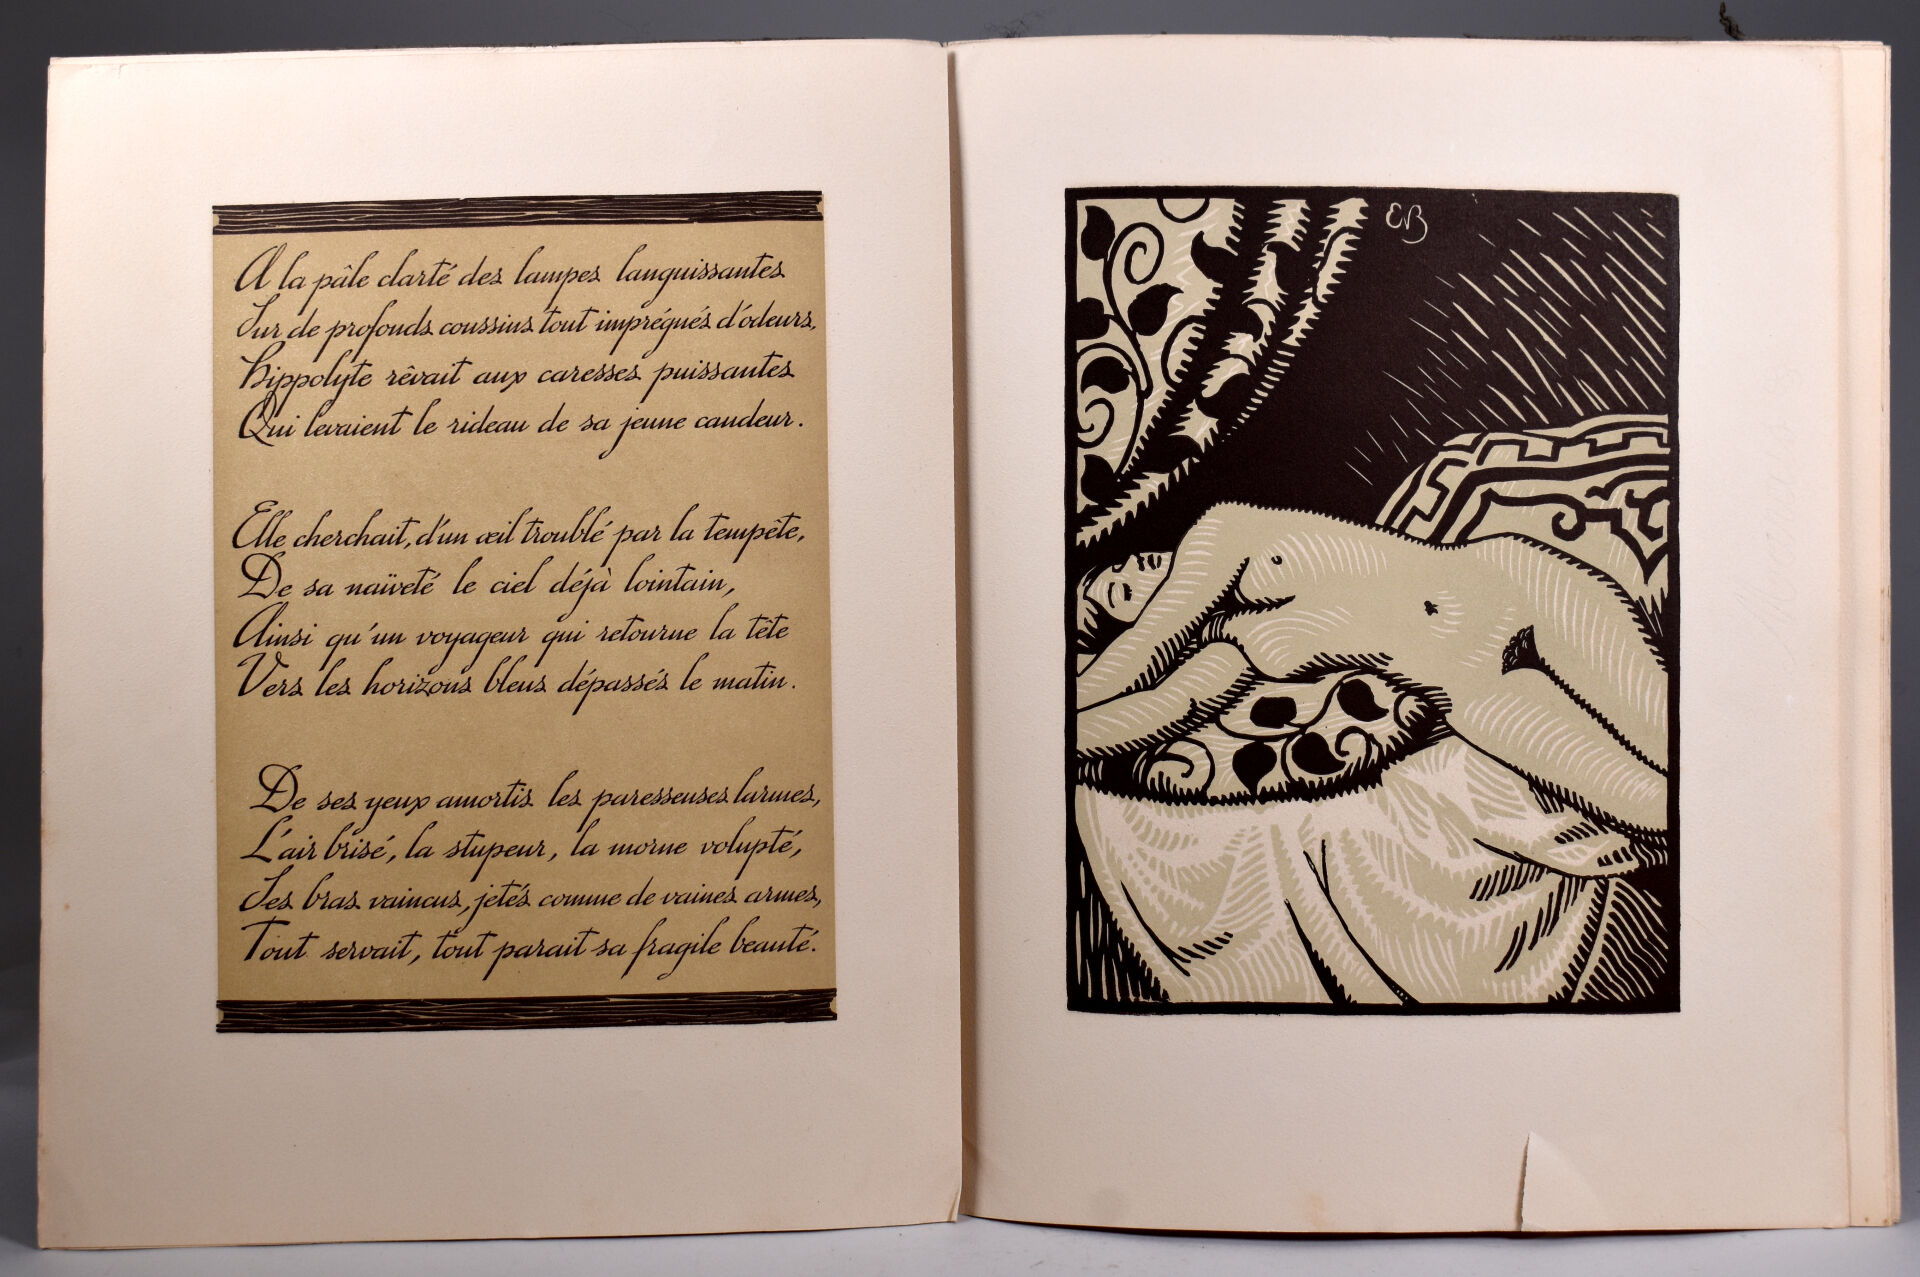 A la pâle clarté des lampes languissantes
Sur de profonds coussins tout imprégnés d'odeurs,
Hippolyte rêvait aux caresses puissantes
Qui levaient le rideau de sa jeune candeur.
Elle cherchait, d'un œil troublé par la tempête,
De sa naïveté le ciel déjà lointain,
Ainsi qu'un voyageur qui retourne la tête
Vers les horizons bleus dépassés le matin.
De ses yeux amortis les paresseuses larmes,
L'air brisé, la stupeur, la morne volupté,
Ses bras vaincus, jetés comme de vaines armes,
Tout servait, tout parait sa fragile beauté.
EB